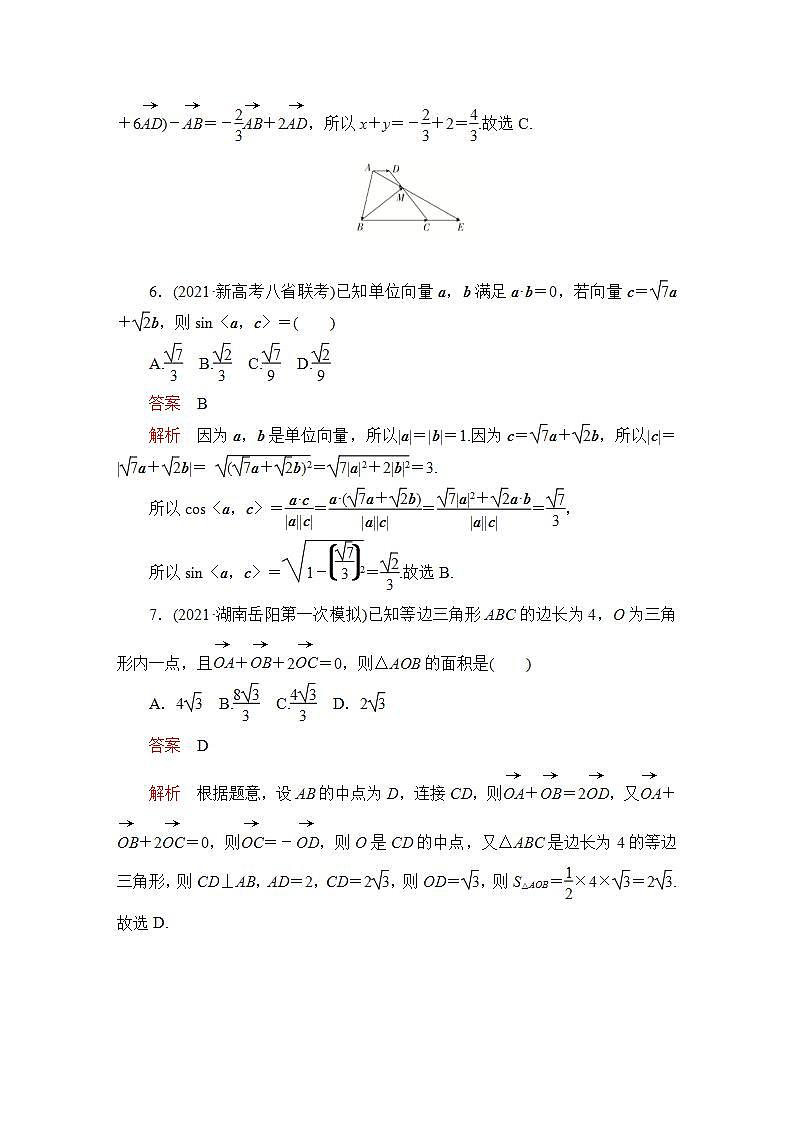 +6AD→)-AB→=-2/3AB→+2AD→,所以 x+y=-2/3+2=4/3.故选 C.
A D
M
B C E
6.(2021·新高考八省联考)已知单位向量 a,b 满足 a·b=0,若向量 c=√7a
+√2b,则 sin〈a,c〉=(  )
A.√7/3 B.√2/3 C.√7/9 D.√2/9
答案 B
解析 因为 a,b 是单位向量,所以|a|=|b|=1.因为 c=√7a+√2b,所以|c|=
|√7a+√2b|=√((√7a+√2b)²)=√(7|a|²+2|b|²)=3.
所以 cos〈a,c〉=a·c/(|a||c|)=a·(√7a+√2b)/(|a||c|)=(√7|a|²+√2a·b)/(|a||c|)=√7/3,
所以 sin〈a,c〉=√(1-(√7/3)²)=√2/3.故选 B.
7.(2021·湖南岳阳第一次模拟)已知等边三角形 ABC 的边长为 4,O 为三角
形内一点,且OA→+OB→+2OC→=0,则△AOB 的面积是(  )
A.4√3 B.8√3/3 C.4√3/3 D.2√3
答案 D
解析 根据题意,设 AB 的中点为 D,连接 CD,则OA→+OB→=2OD→,又OA→+
OB→+2OC→=0,则OC→=-OD→,则 O 是 CD 的中点,又△ABC 是边长为 4 的等边
三角形,则 CD⊥AB,AD=2,CD=2√3,则 OD=√3,则 S△AOB=1/2×4×√3=2√3.
故选 D.